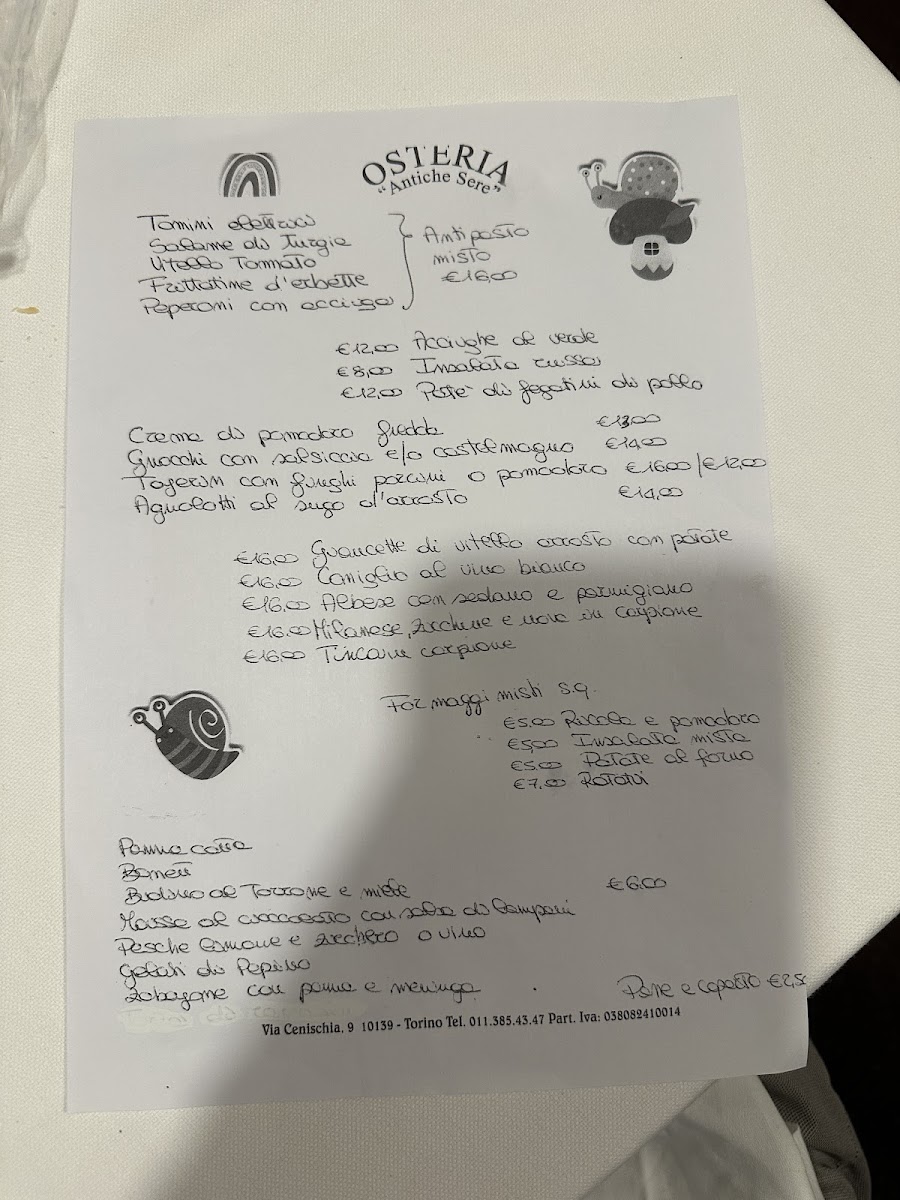 OSTERIA
"Antiche Sere"
Tomini elettrici
Salame di Turgia
Vitello Tonnato
Frittatine d'erbette
Peperoni con acciuga
Antipasto
misto
€16,00
€12,00 Acciughe al verde
€8,00 Insalata russa
€12,00 Patè di fegatini di pollo
Crema di pomodoro fredda €13,00
Gnocchi con salsiccia e/o castelmagno €14,00
Tajerin con funghi porcini o pomodoro €16,00/€12,00
Agnolotti al sugo d'arrosto €14,00
€16,00 Guancette di vitello arrosto con patate
€16,00 Coniglio al vino bianco
€16,00 Albese con sedano e parmigiano
€16,00 Milanese, zucchine e uova in carpione
€16,00 Tinca in carpione
Formaggi misti s.q.
€5,00 Rucola e pomodoro
€5,00 Insalata mista
€5,00 Patate al forno
€7,00 Patatui
Panna cotta
Bonett
Budino al Torrone e miele €6,00
Mousse al cioccolato con salsa di lamponi
Pesche limone e zucchero o vino
Gelati di Pepino
Zabajone con panna e meringa
Pane e coperto €2,50
Via Cenischia, 9 10139 - Torino Tel. 011.385.43.47 Part. Iva: 038082410014